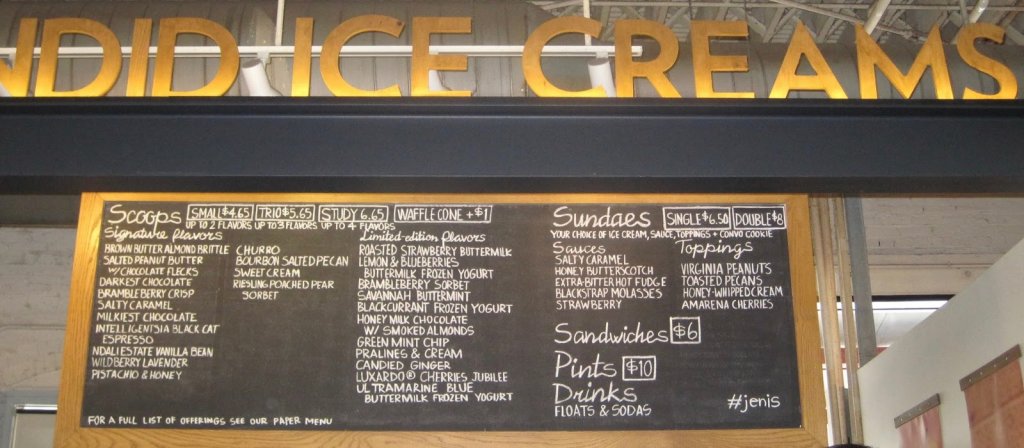 NDID ICE CREAMS
Scoops SMALL $4.65 TRIO $5.65 STUDY 6.65 WAFFLE CONE +$1
UP TO 2 FLAVORS UP TO 3 FLAVORS UP TO 4 FLAVORS
Signature flavors
BROWN BUTTER ALMOND BRITTLE
SALTED PEANUT BUTTER
W/CHOCOLATE FLECKS
DARKEST CHOCOLATE
BRAMBLEBERRY CRISP
SALTY CARAMEL
MILKIEST CHOCOLATE
INTELLIGENTSIA BLACK CAT
ESPRESSO
NDALI ESTATE VANILLA BEAN
WILDBERRY LAVENDER
PISTACHIO & HONEY
CHURRO
BOURBON SALTED PECAN
SWEET CREAM
RIESLING POACHED PEAR
SORBET
Limited-edition flavors
ROASTED STRAWBERRY BUTTERMILK
LEMON & BLUEBERRIES
BUTTERMILK FROZEN YOGURT
BRAMBLEBERRY SORBET
SAVANNAH BUTTERMINT
BLACKCURRANT FROZEN YOGURT
HONEY MILK CHOCOLATE
W/ SMOKED ALMONDS
GREEN MINT CHIP
PRALINES & CREAM
CANDIED GINGER
LUXARDO® CHERRIES JUBILEE
ULTRAMARINE BLUE
BUTTERMILK FROZEN YOGURT
FOR A FULL LIST OF OFFERINGS SEE OUR PAPER MENU
Sundaes SINGLE $6.50 DOUBLE $8
YOUR CHOICE OF ICE CREAM, SAUCE, TOPPINGS + CONVO COOKIE
Sauces
SALTY CARAMEL
HONEY BUTTERSCOTCH
EXTRA-BITTER HOT FUDGE
BLACKSTRAP MOLASSES
STRAWBERRY
Toppings
VIRGINIA PEANUTS
TOASTED PECANS
HONEY-WHIPPED CREAM
AMARENA CHERRIES
Sandwiches $6
Pints $10
Drinks
FLOATS & SODAS
#jenis